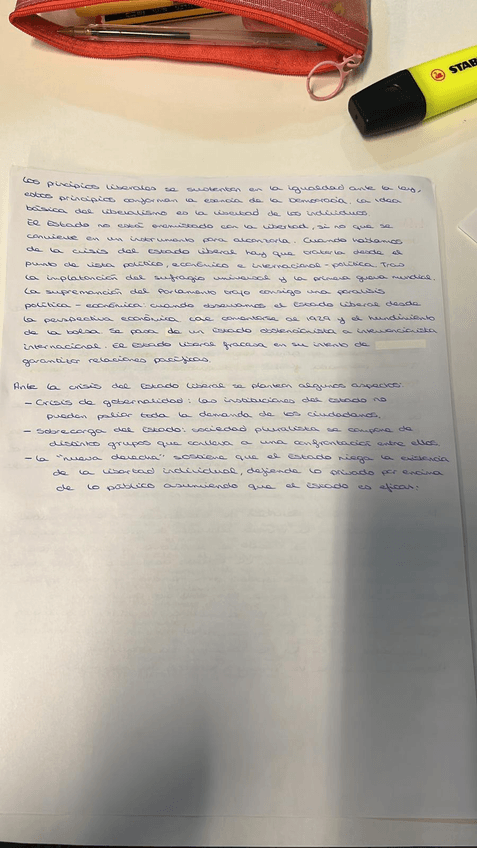 STAB
Los pincipios liberales se sustentan en la igualdad ante la ley,
estos principios conforman la esencia de la Democracia. La idea
básica del liberalismo es la libertad de los individuos.
El Estado no está enemistado con la libertad, si no que se
convierte en un instrumento para alcanzarla. Cuando hablamos
de la crisis del Estado liberal hay que tratarla desde el
punto de vista político, económico e internacional-político. Tras
la implatanción del sufragio universal y la primera guerra mundial.
La supremanción del Parlamento trajo consigo una parálisis
política-económica: cuando observamos el Estado liberal desde
la perspectiva económica cae comentarse al 1929 y el hundimiento
de la bolsa. Se pasa de un Estado abstencionista a intervencionista
internacional. El Estado liberal fracasa en su intento de
garantizar relaciones pacíficas.
Ante la crisis del Estado liberal se plantean algunos aspectos:
- Crisis de gobernalidad: las instituciones del Estado no
pueden paliar toda la demanda de los ciudadanos.
- Sobrecarga del Estado: sociedad pluralista se compone de
distintos grupos que conlleva a una confrontación entre ellos
- La "nueva derecha" sostiene que el Estado niega la existencia
de la libertad individual, defiende lo privado por encima
de lo público asumiendo que el Estado es eficaz.